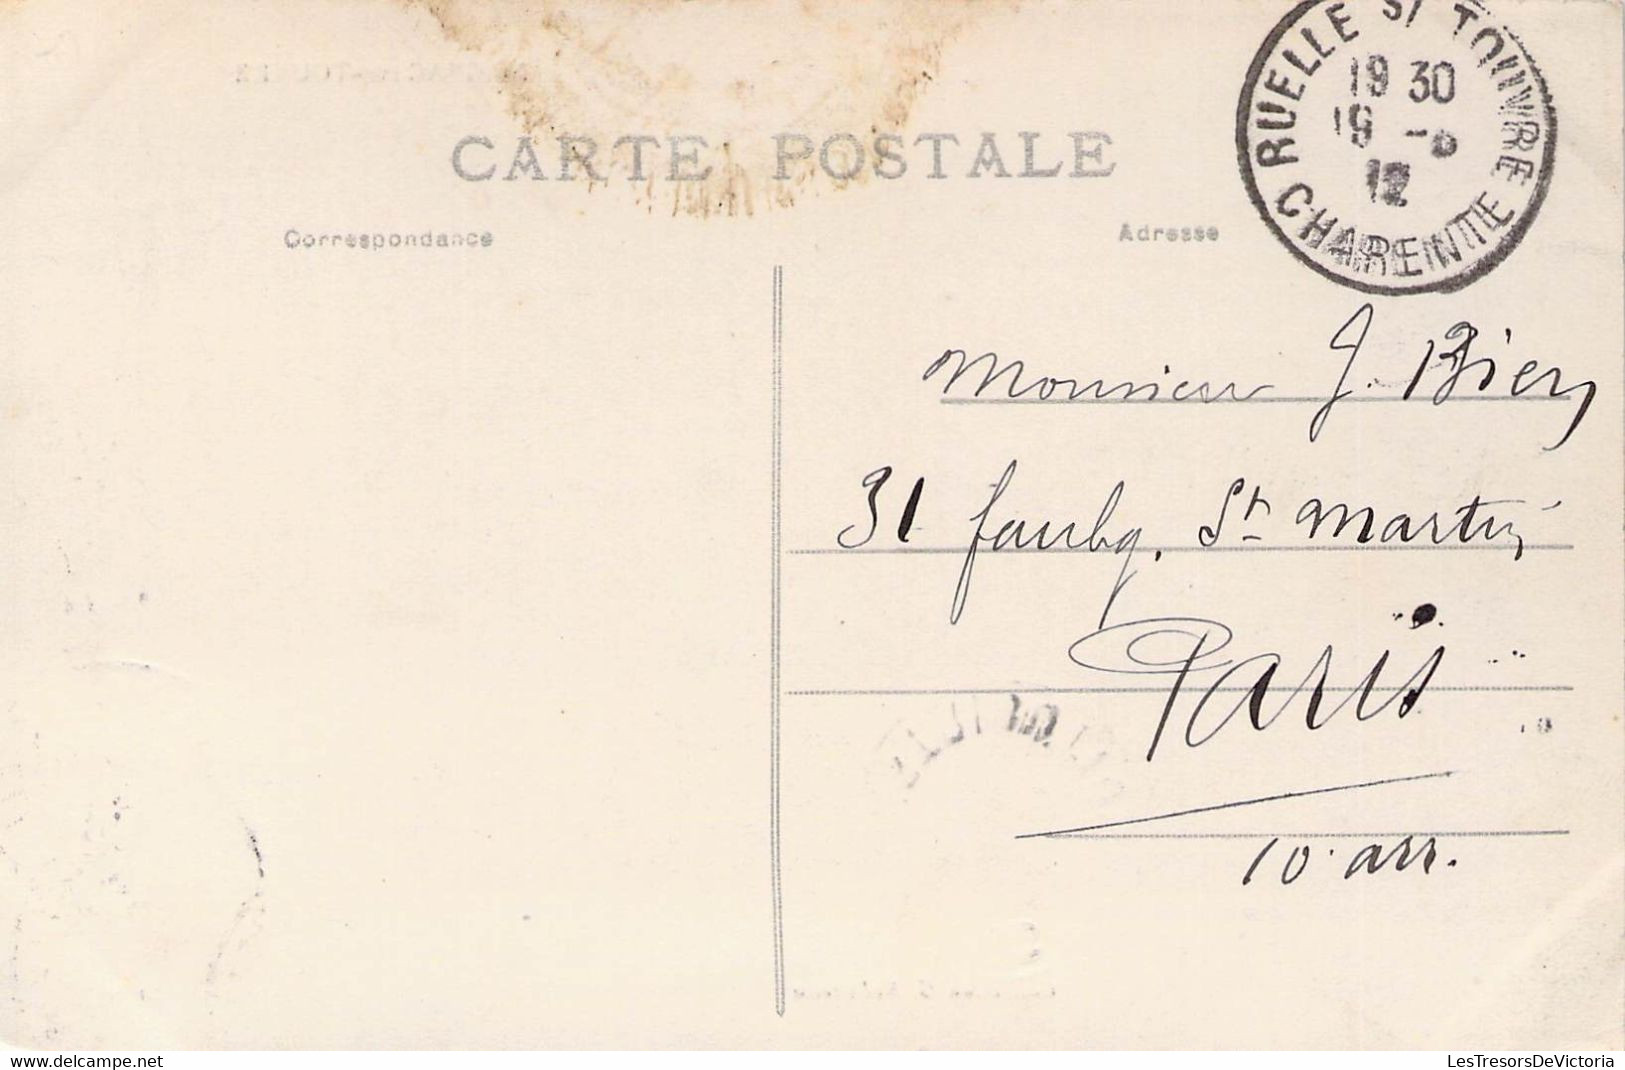 CARTE POSTALE
Correspondance
Adresse
RUELLE S/ TOUVRE
19 30
19
12
CHARENTE
Monsieur J. Biery
31 faubg. St Martin
Paris
10 arr.
www.delcampe.net
LesTresorsDeVictoria